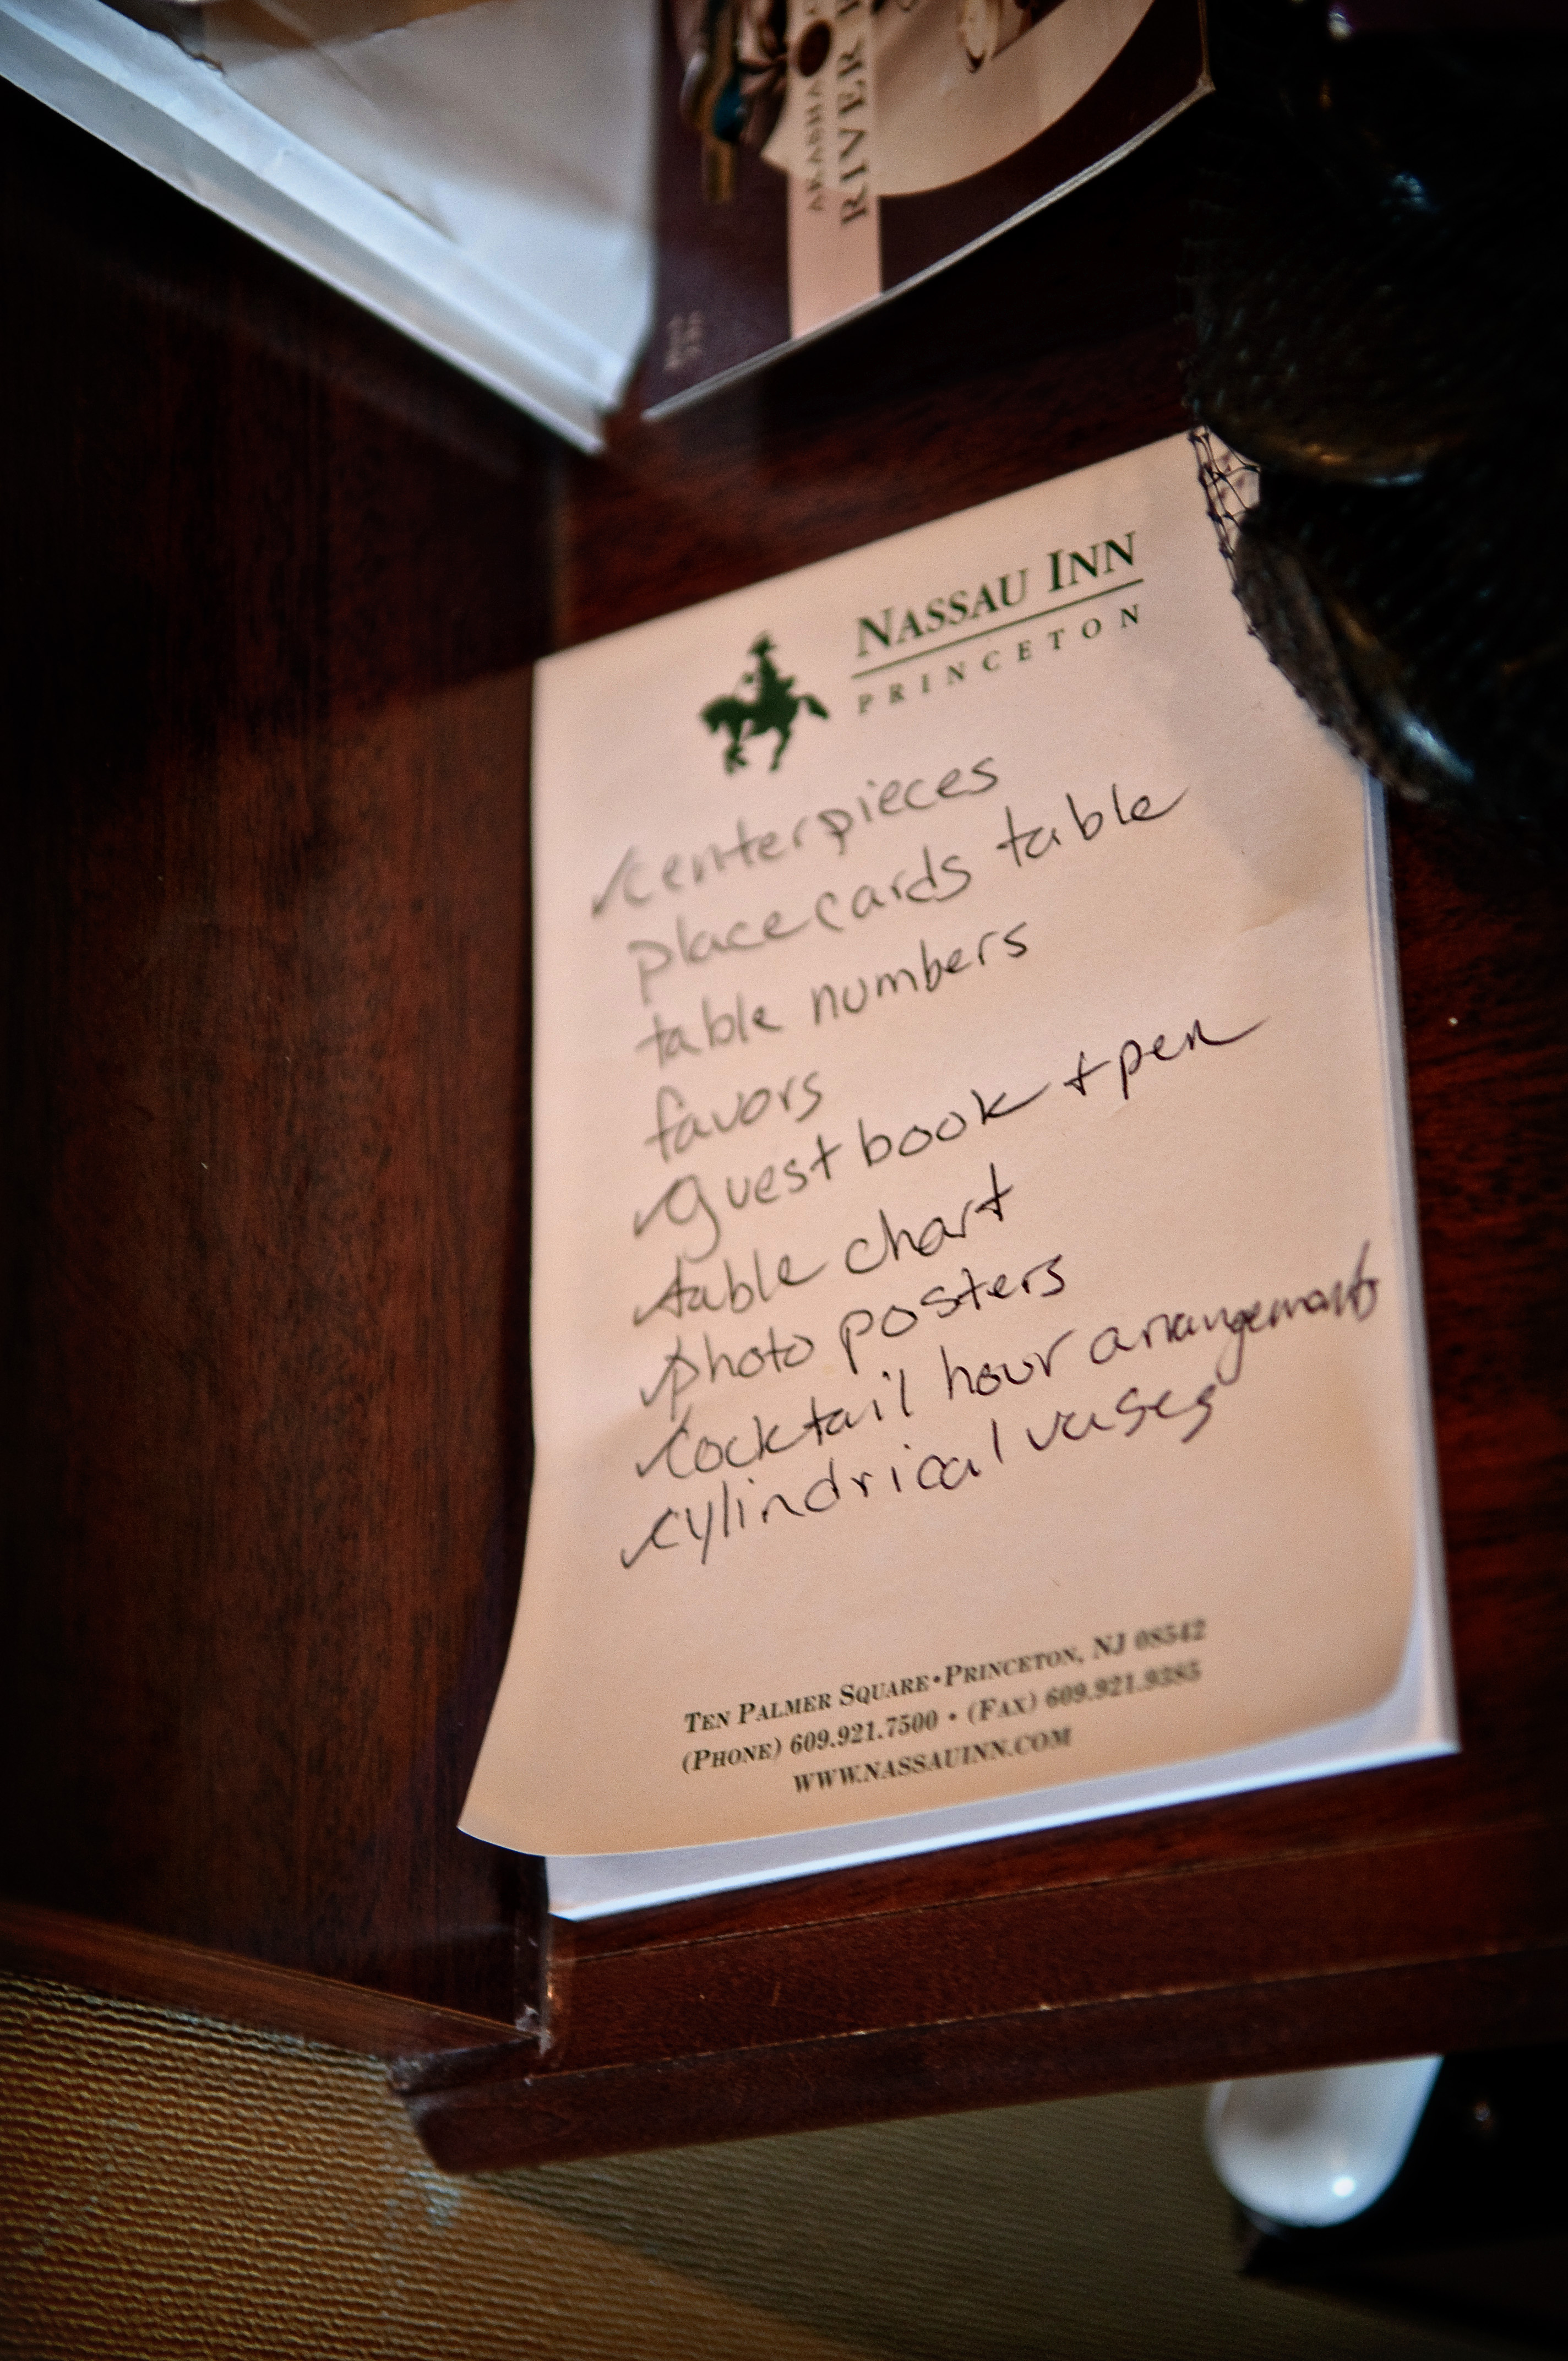 AKASHA
RIVER
NASSAU INN
PRINCETON
✓centerpieces
place cards table
table numbers
favors
✓guest book + pen
✓table chart
✓photo posters
✓cocktail hour arrangements
✓cylindrical vases
TEN PALMER SQUARE • PRINCETON, NJ 08542
(PHONE) 609.921.7500 • (FAX) 609.921.9385
WWW.NASSAUINN.COM